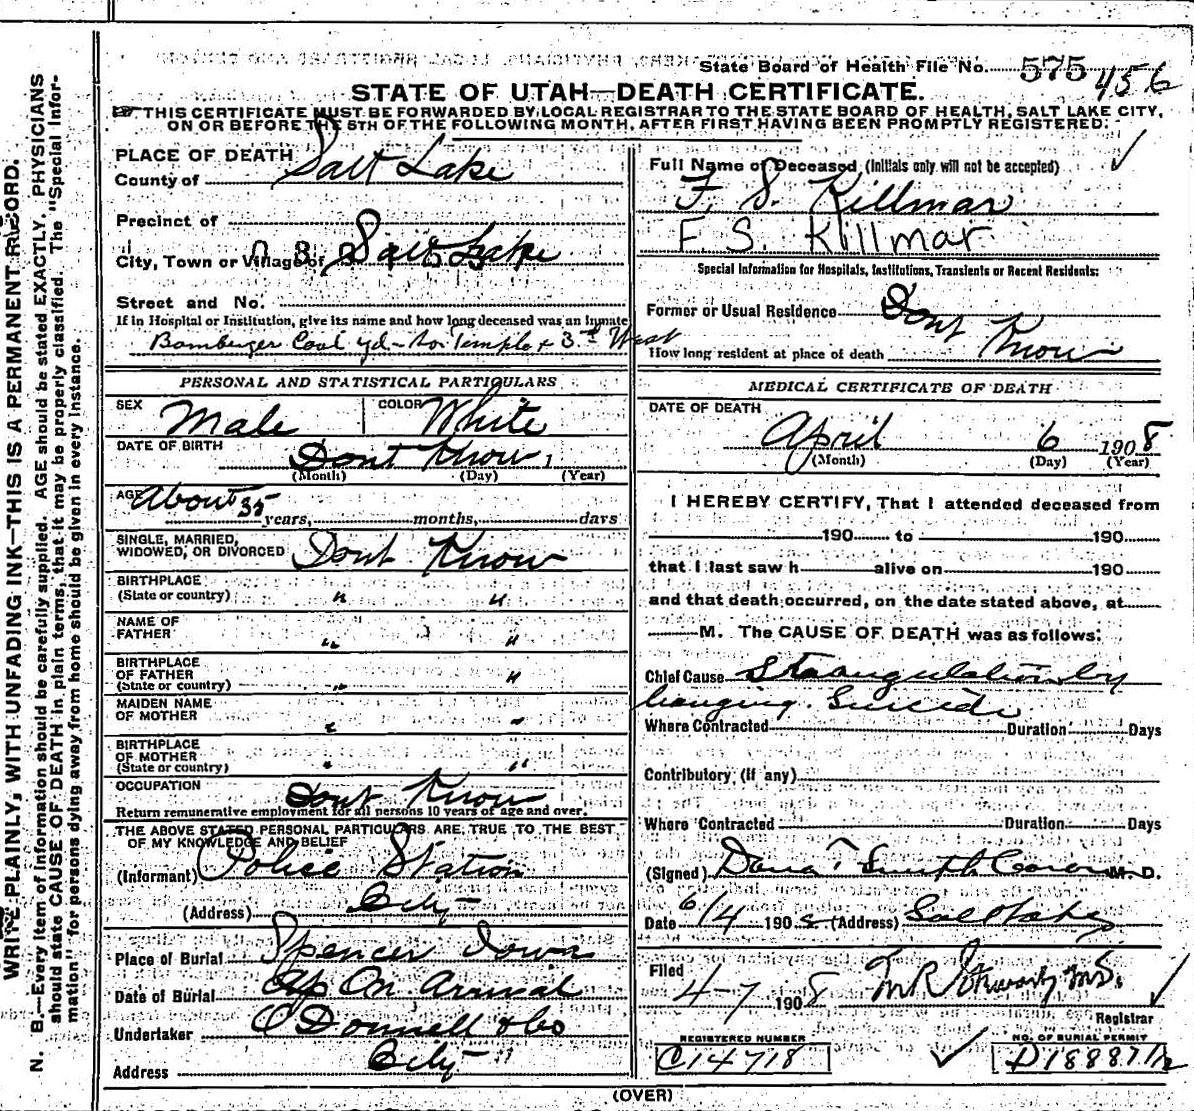 State Board of Health File No. 575 456
STATE OF UTAH—DEATH CERTIFICATE.
THIS CERTIFICATE MUST BE FORWARDED BY LOCAL REGISTRAR TO THE STATE BOARD OF HEALTH, SALT LAKE CITY,
ON OR BEFORE THE 5TH OF THE FOLLOWING MONTH, AFTER FIRST HAVING BEEN PROMPTLY REGISTERED.
WRITE PLAINLY, WITH UNFADING INK—THIS IS A PERMANENT RECORD.
N. B.—Every item of Information should be carefully supplied. AGE should be stated EXACTLY. PHYSICIANS
should state CAUSE OF DEATH in plain terms, that it may be properly classified. The "Special Infor-
mation" for persons dying away from home should be given in every instance.
PLACE OF DEATH
County of Salt Lake
Precinct of
City, Town or Village of Salt Lake
Street and No.
If in Hospital or Institution, give its name and how long deceased was an Inmate
Bamberger Coal yd - So. Temple & 3rd West
PERSONAL AND STATISTICAL PARTICULARS
SEX Male COLOR White
DATE OF BIRTH Dont Know
(Month) (Day) (Year)
AGE About 35
years, months, days
SINGLE, MARRIED,
WIDOWED, OR DIVORCED Dont Know
BIRTHPLACE
(State or country) " "
NAME OF
FATHER " "
BIRTHPLACE
OF FATHER
(State or country) " "
MAIDEN NAME
OF MOTHER " "
BIRTHPLACE
OF MOTHER
(State or country) " "
OCCUPATION Dont Know
Return remunerative employment for all persons 10 years of age and over.
THE ABOVE STATED PERSONAL PARTICULARS ARE TRUE TO THE BEST
OF MY KNOWLEDGE AND BELIEF
(Informant) Police Station
(Address) City
Place of Burial Spencer Iowa
Date of Burial Up On Arrival
Undertaker O'Donnell & Co
Address City
Full Name of Deceased (Initials only will not be accepted)
F. S. Killmar
F S. Killmar
Special Information for Hospitals, Institutions, Transients or Recent Residents:
Former or Usual Residence Dont
How long resident at place of death Know
MEDICAL CERTIFICATE OF DEATH
DATE OF DEATH
April 6 1908
(Month) (Day) (Year)
I HEREBY CERTIFY, That I attended deceased from
190 to 190
that I last saw h alive on 190
and that death occurred, on the date stated above, at
M. The CAUSE OF DEATH was as follows:
Chief Cause Strangulation by
hanging. Suicide
Where Contracted Duration Days
Contributory (if any)
Where Contracted Duration Days
(Signed) Dana T Smith Coroner M. D.
Date 6/4 1908 (Address) Salt Lake
Filed 4-7 1908 M.D.
Registrar
REGISTERED NUMBER
C14718
NO. OF BURIAL PERMIT
D18887 1/2
(OVER)